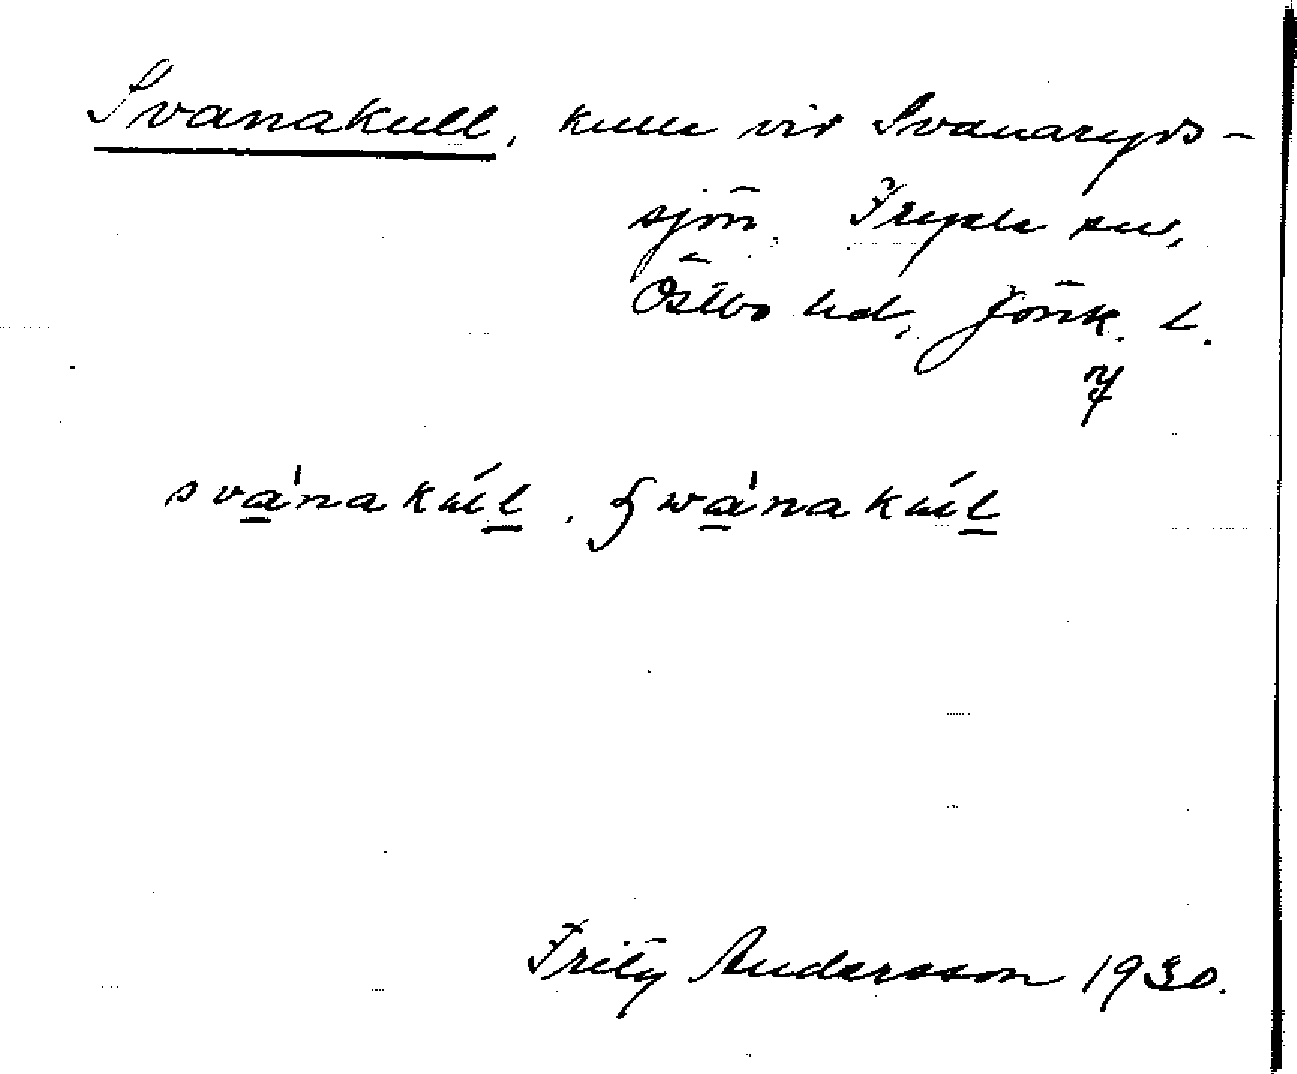 Svanakull, kulle vid Svanaryds-
sjön. Fryele sn,
Östbo hd, Jönk. l.
7
svánakúl. ʃwánakúl
Fritz Andersson 1930.